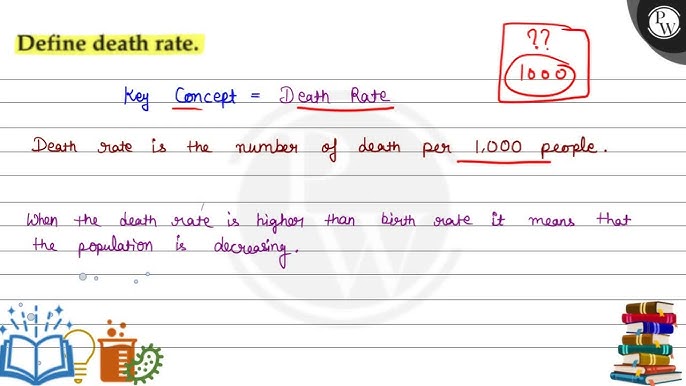 Define death rate.
??
1000
Key Concept = Death Rate
Death rate is the number of death per 1,000 people.
When the death rate is higher than birth rate it means that
the population is decreasing.
PW
PW